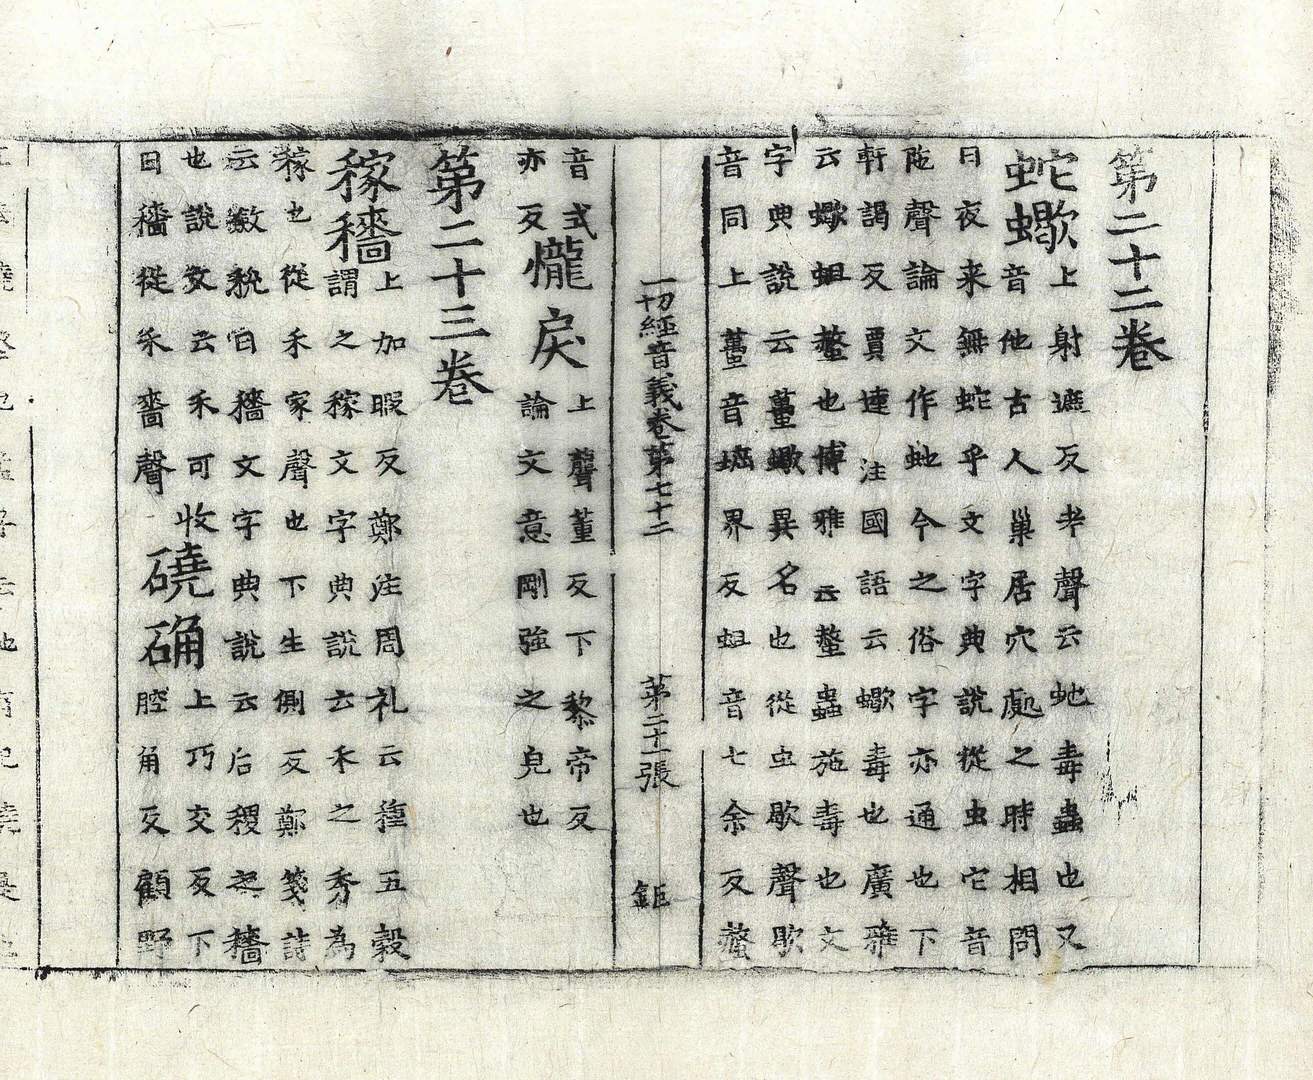 第二十二卷
蛇蠍上射遮反考聲云虵毒蟲也又
音他古人巢居穴處之時相問
日夜来無蛇乎文字典說從虫它音
陁聲論文作虵今之俗字亦通也下
軒謁反賈逵注國語云蠍毒也廣雅
云蠍蛆螫也博雅云螫蟲施毒也文
字典說云蠆蠍異名也從虫歇聲歇
音同上蠆音壒界反蛆音七余反螫
一切經音義卷第七十二 第二十一張 鉅
音式
亦反𢤱戾上聾董反下黎帝反
論文意剛強之皃也
第二十三卷
稼穡上加暇反鄭注周礼云種五穀
謂之稼文字典說云禾之秀為
稼也從禾家聲也下生側反鄭箋詩
云斂稅曰穡文字典說云后稷之穡
也說文云禾可收
曰穡從禾嗇聲
磽确上巧交反下
腔角反顧野